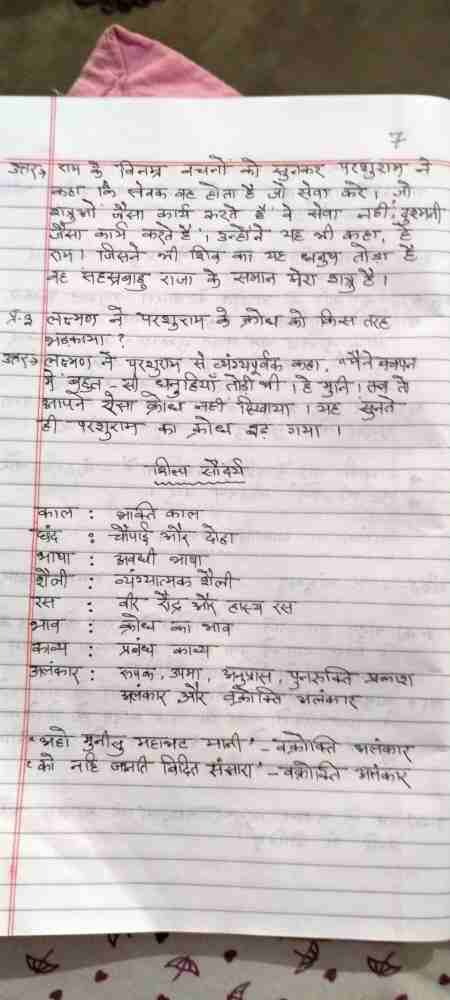 7
उत्तर→ राम के विनम्र वचनों को सुनकर परशुराम ने
कहा कि सेवक वह होता है जो सेवा करे। जो
शत्रुओं जैसा कार्य करते हैं वे सेवा नहीं, दुश्मनी
जैसा कार्य करते हैं। उन्होंने यह भी कहा, हे
राम। जिसने भी शिव का यह धनुष तोड़ा है
वह सहस्रबाहु राजा के समान मेरा शत्रु है।
प्र-3 लक्ष्मण ने परशुराम के क्रोध को किस तरह
भड़काया ?
उत्तर→ लक्ष्मण ने परशुराम से व्यंग्यपूर्वक कहा, "मैंने बचपन
में बहुत-सी धनुहिया तोड़ी थी। हे मुनि। तब तो
आपने ऐसा क्रोध नहीं दिखाया। यह सुनते
ही परशुराम का क्रोध बढ़ गया।
शिल्प सौंदर्य
काल : भक्ति काल
छंद : चौपाई और दोहा
भाषा : अवधी भाषा
शैली : व्यंग्यात्मक शैली
रस : वीर रौद्र और हास्य रस
भाव : क्रोध का भाव
काव्य : प्रबंध काव्य
अलंकार : रूपक, उपमा, अनुप्रास, पुनरुक्ति प्रकाश
अलंकार और वक्रोक्ति अलंकार
'अहो मुनीसु महाभट मानी' - वक्रोक्ति अलंकार
'को नहि जानति विदित संसारा' - वक्रोक्ति अलंकार